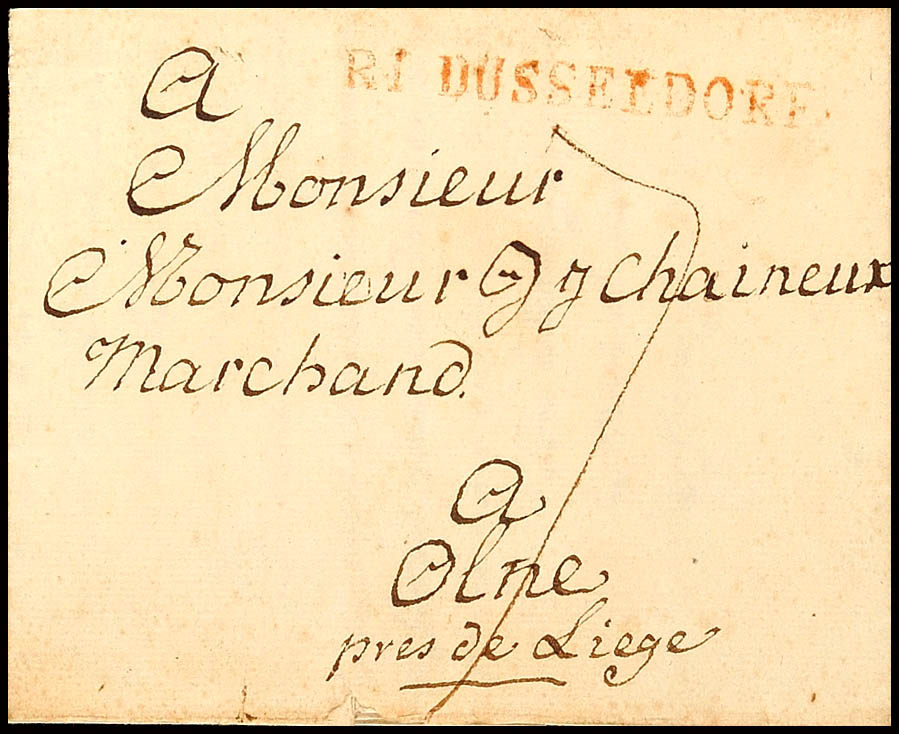 R1 DUSSELDORF
A
Monsieur
Monsieur J J Chaineux
Marchand.
A
Olne
pres de Liege
7